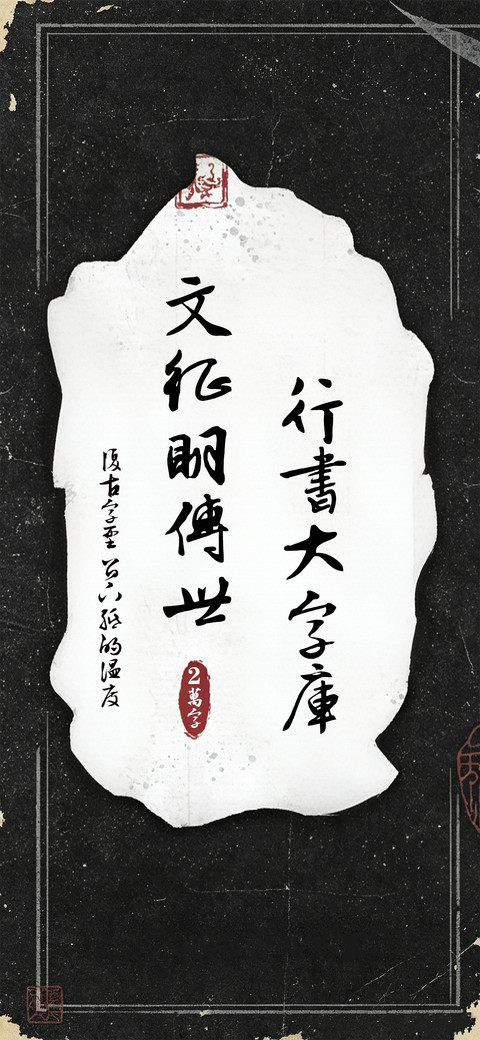 文征明傳世
行書大字庫
2萬字
復古字型 紙的溫度